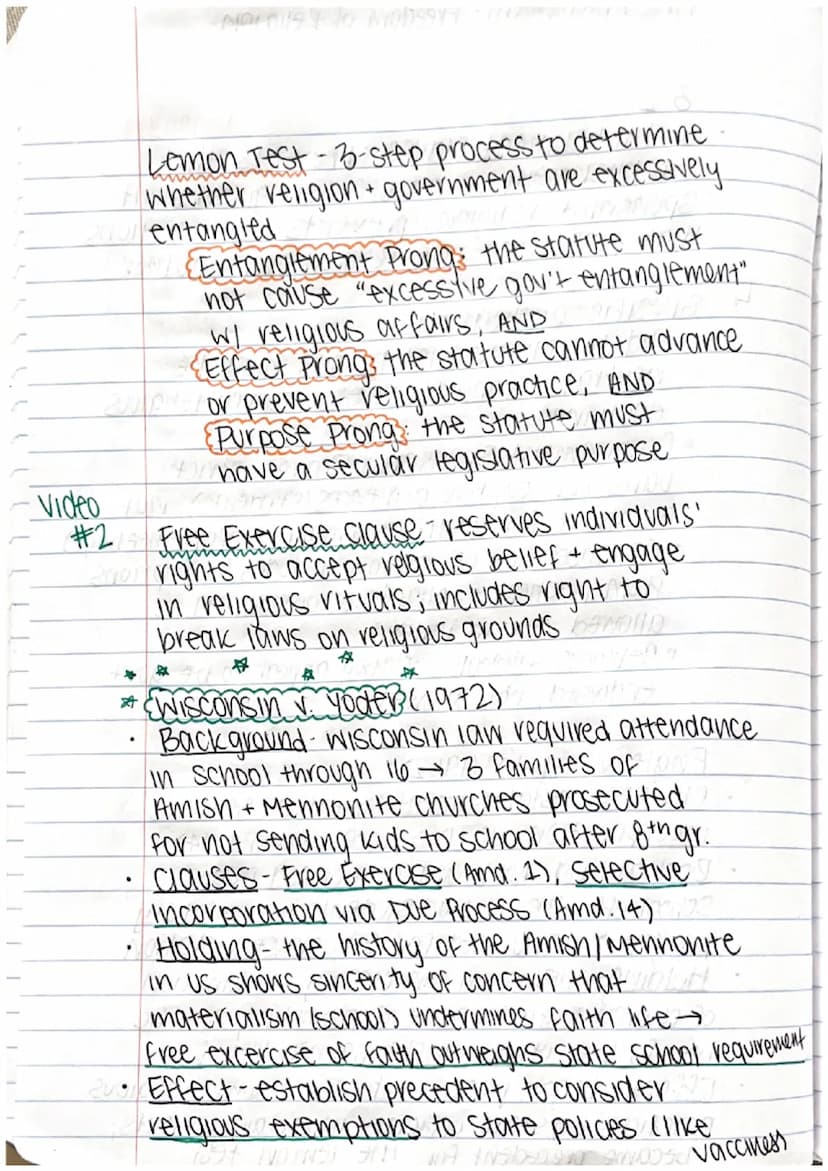 Lemon Test - 3-step process to determine
whether religion + government are excessively
entangled
Entanglement Prong: the statute must
not cause "excessive gov't entanglement"
w/ religious affairs, AND
Effect Prong: the statute cannot advance
or prevent religious practice, AND
Purpose Prong: the statute must
have a secular legislative purpose
Video
#2
Free Exercise Clause - reserves individuals'
rights to accept relgious belief + engage
in religious rituals; includes right to
break laws on religious grounds
Wisconsin v. Yoder (1972)
• Background - Wisconsin law required attendance
in school through 16 → 3 families of
Amish + Mennonite churches prosecuted
for not sending kids to school after 8th gr.
• Clauses - Free Exercise (Amd. 1), Selective
Incorporation via Due Process (Amd. 14)
• Holding - the history of the Amish/Mennonite
in US shows sincerity of concern that
materialism (school) undermines faith life →
free excercise of faith outweighs state school requirement
• Effect - establish precedent to consider
religious exemptions to state policies (like
vaccines)